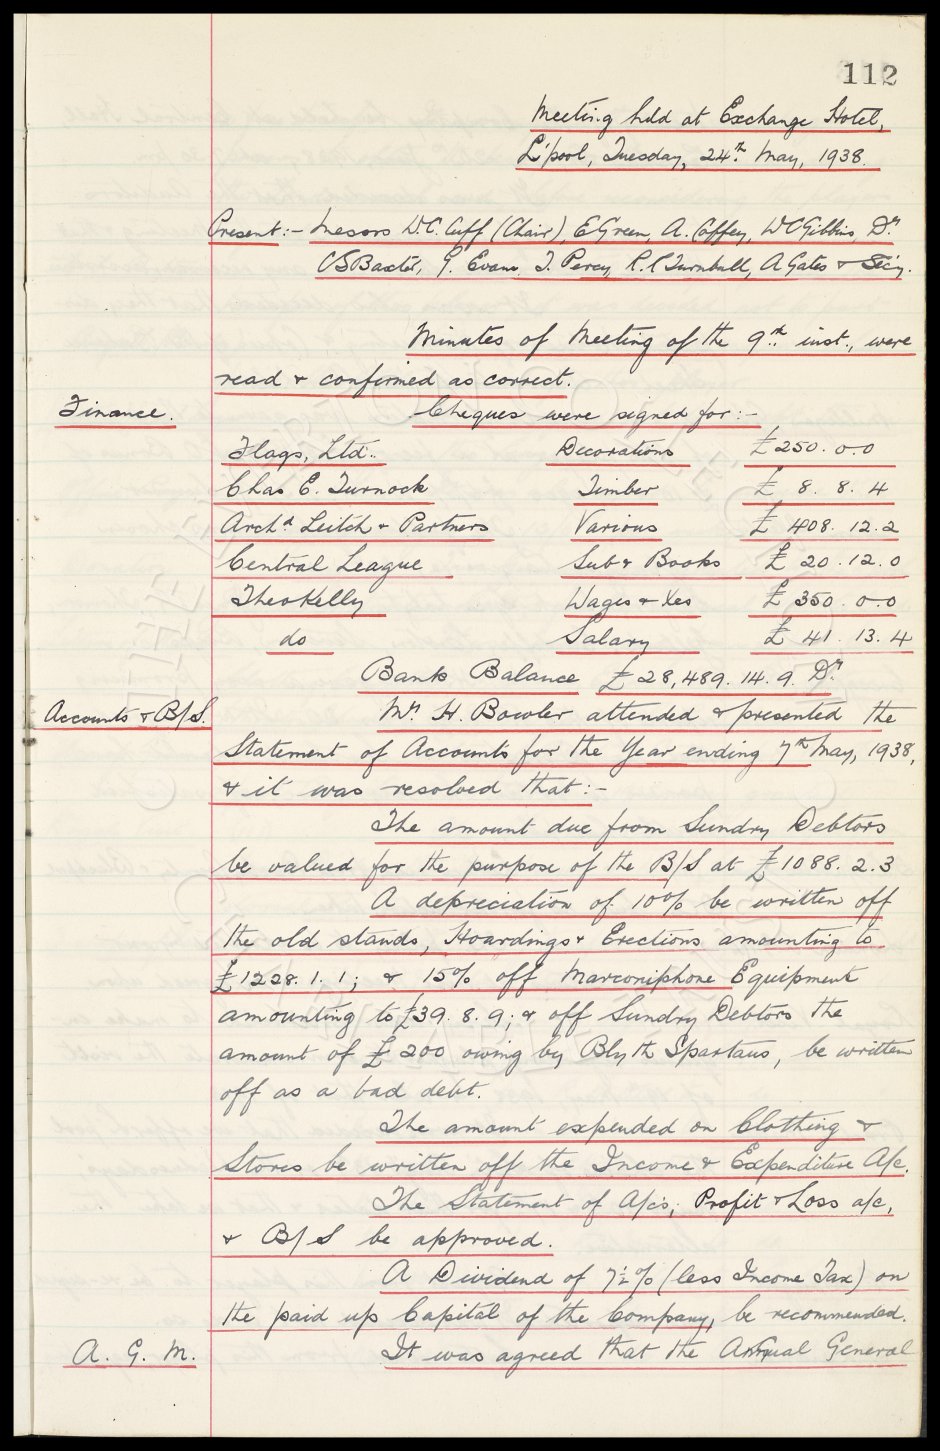 112
Meeting held at Exchange Hotel,
L'pool, Tuesday, 24th May, 1938.
Present:- Messrs W.C. Cuff (Chair), E Green, A. Coffey, W C Gibbins, Dr
C S Baxter, G. Evans, J. Percy, R. C Turnbull, A Gates & Sec'y.
Minutes of Meeting of the 9th inst., were
read & confirmed as correct.
Finance. Cheques were signed for:-
Flags, Ltd. Decorations £250. 0. 0
Chas E. Turnock Timber £ 8. 8. 4
Archd Leitch & Partners Various £ 408. 12. 2
Central League Sub & Books £ 20. 12. 0
Theo Kelly Wages & Xes £ 350. 0. 0
do Salary £ 41. 13. 4
Bank Balance £28,489. 14. 9. Dr
Accounts & B/S. Mr H. Bowler attended & presented the
Statement of Accounts for the Year ending 7th May, 1938,
& it was resolved that:-
The amount due from Sundry Debtors
be valued for the purpose of the B/S at £1088. 2. 3
A depreciation of 10% be written off
the old stands, Hoardings & Erections amounting to
£1228. 1. 1; & 15% off Marconiphone Equipment
amounting to £39. 8. 9; & off Sundry Debtors the
amount of £200 owing by Blyth Spartans, be written
off as a bad debt.
The amount expended on Clothing &
Stores be written off the Income & Expenditure A/c.
The Statement of A/cs, Profit & Loss a/c,
& B/S be approved.
A Dividend of 7½% (less Income Tax) on
the paid up Capital of the Company, be recommended.
A. G. M. It was agreed that the Annual General